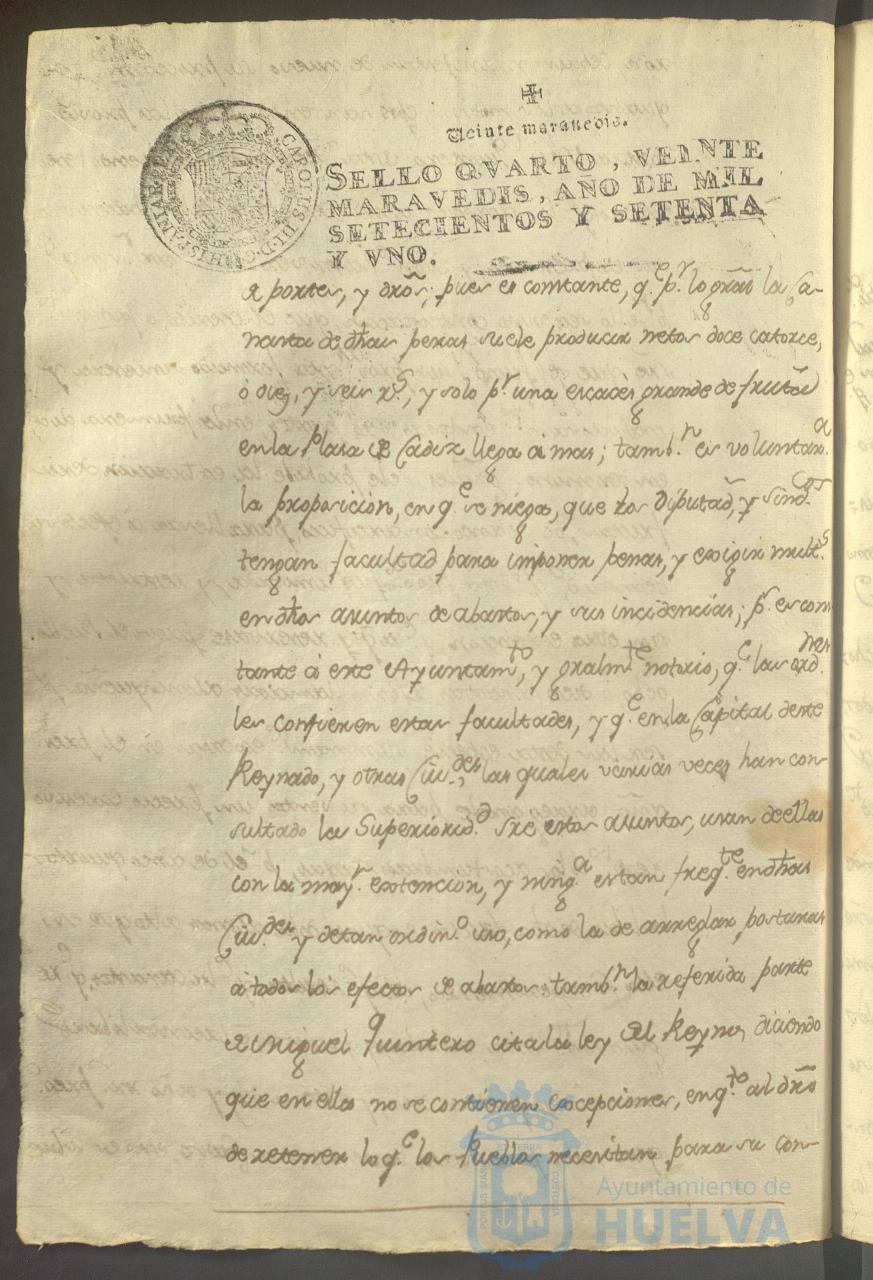 Veinte maravedis.
CAROLUS III D.G. HISPANIAR REX
SELLO QVARTO, VEINTE
MARAVEDIS, AÑO DE MIL
SETECIENTOS Y SETENTA
Y VNO.
a portes, y dros; pues es constante, q.e p.r lo gral la Ca-
nasta de dhas peras suele producir netos doce catorce,
ó diez, y seis r.s, y solo p.r una escaces grande de frutas
en la Plasa de Cadiz llega á mas; tamb.n es voluntar.a
la proposicion, en q.e se niega, que los Diputad.s y Sind.cos
tengan facultad para imponer penas, y exigir mult.s
en dhos asuntos de abastos, y sus incidencias; p.s es cons
tante á este Ayuntam.to, y gralm.te notorio, q.e las ord.nes
les confieren estas facultades, y q.e en la Capital deste
Reynado, y otras Ciu.des, las quales varias veces han con-
sultado la Superiorid.d sre estos asuntos, usan de ellas
con la may.r extencion, y ning.a es tan freq.te en dhas
Ciu.des y de tan ordin.o uso, como la de arreglar posturas
á todos los efectos de abastos: tamb.n la referida parte
de Miguel Quintero cita la ley del Reyno, diciendo
que en ellas no se contienen excepciones, en q.to al dro
de retener lo q.e los Pueblos necesitan para su con-
Ayuntamiento de
HUELVA